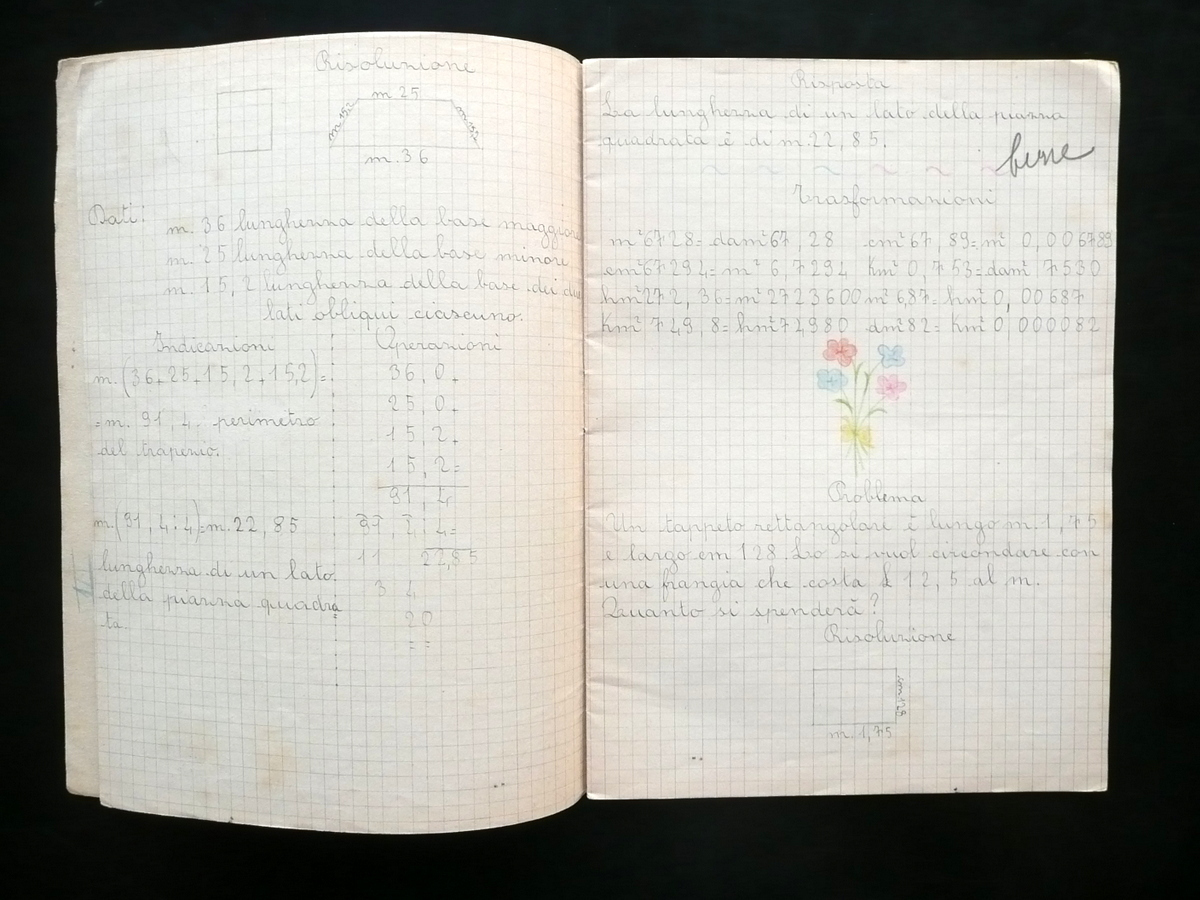 Risoluzione
m 25
m 15,2
m 15,2
m. 36
Dati: m. 36 lunghezza della base maggiore
m. 25 lunghezza della base minore
m. 15,2 lunghezza della base dei due
lati obliqui ciascuno.
Indicazioni
m.(36+25+15,2+15,2)=
=m. 91,4 perimetro
del trapezio.
m.(91,4:4)=m.22,85
lunghezza di un lato
della piazza quadra
ta.
Operazioni
36,0+
25,0+
15,2+
15,2=
91,4
91,4:4=
11 22,85
34
20
==
Risposta
La lunghezza di un lato della piazza
quadrata è di m.22,85.
bene
Trasformazioni
m²6728=dam²67,28 cm²67,89=m² 0,006789
cm²67294=m² 6,7294 Km²0,753=dam² 7530
hm²272,36=m²2723600 m²6,87=hm²0,00687
Km²749,8=hm²74980 dm²82=Km²0,000082
Problema
Un tappeto rettangolare è lungo m.1,75
e largo cm 128. Lo si vuol circondare con
una frangia che costa £ 12,5 al m.
Quanto si spenderà?
Risoluzione
cm 128
m. 1,75